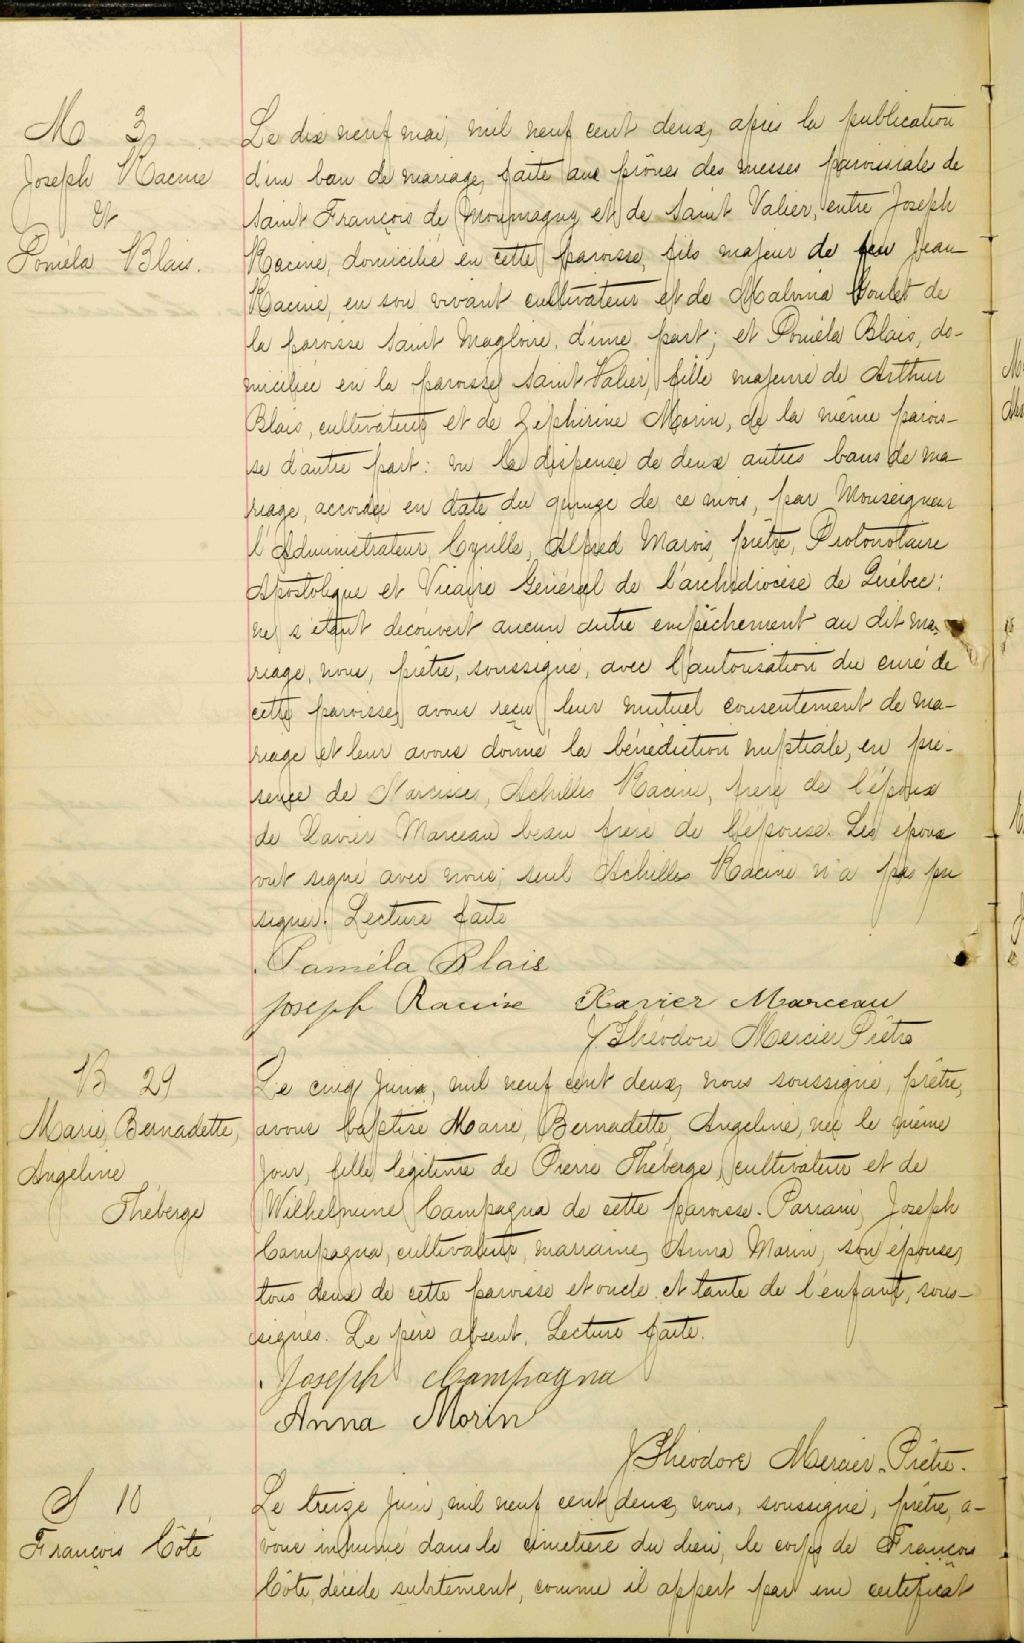 M 3
Joseph Racine
et
Poméla Blais.
Le dix neuf mai, mil neuf cent deux, après la publication
d'un ban de mariage, faite aux prônes des messes paroissiales de
Saint François de Montmagny et de Saint Valier, entre Joseph
Racine, domicilié en cette paroisse, fils majeur de feu Jean
Racine, en son vivant cultivateur et de Malvina Goulet de
la paroisse Saint Magloire, d'une part; et Poméla Blais, do-
miciliée en la paroisse Saint Valier, fille majeure de Arthur
Blais, cultivateur et de Zéphirine Morin, de la même parois-
se d'autre part: vu la dispense de deux autres bans de ma-
riage, accordée en date du quinze de ce mois, par Monseigneur
l'Administrateur, Cyrille, Alfred Marois, prêtre, Protonotaire
Apostolique et Vicaire Général de l'archidiocèse de Québec:
ne s'étant découvert aucun autre empêchement au dit ma-
riage, nous, prêtre, soussigné, avec l'autorisation du curé de
cette paroisse, avons reçu leur mutuel consentement de ma-
riage et leur avons donné la bénédiction nuptiale, en pré-
sence de Narcisse, Achilles Racine, frère de l'époux
de Xavier Marceau beau frère de l'épouse. Les epoux
ont signé avec nous; seul Achilles Racine n'a pas pu
signer. Lecture faite
Paméla Blais
Joseph Racine Xavier Marceau
J Théodore Mercier Prêtre
B 29
Marie, Bernadette,
Angéline
Théberge
Le cinq Juin, mil neuf cent deux, nous soussigné, prêtre,
avons baptisé Marie, Bernadette, Angeline, née le même
jour, fille légitime de Pierre Théberge, cultivateur et de
Wilhelmine Campagna de cette paroisse. Parrain, Joseph
Campagna, cultivateur, marraine, Anna Morin, son épouse,
tous deux de cette paroisse et oncle et tante de l'enfant, sous-
signés. Le père absent. Lecture faite.
Joseph Campagna
Anna Morin
J Théodore Mercier. Prêtre.
S 10
François Côté
Le treize Juin, mil neuf cent deux, nous, soussigné, prêtre, a-
vons inhumé dans le cimetière du lieu, le corps de François
Côté, décédé subitement, comme il appert par un certificat